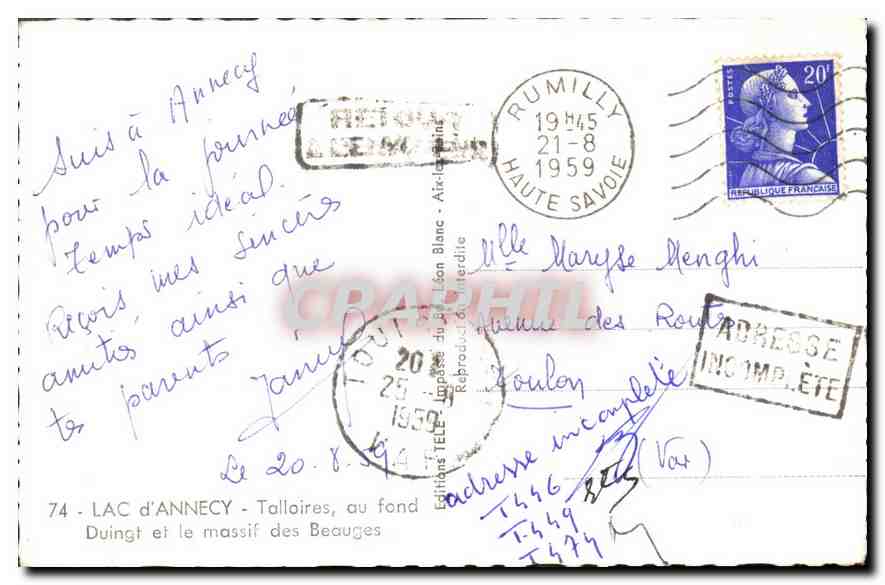 Suis à Annecy
pour la journée
temps idéal.
Reçois mes sincères
amitiés ainsi que
tes parents
Le 20.8.59
74 - LAC d'ANNECY - Talloires, au fond
Duingt et le massif des Beauges
RETOUR
A L'ENVOYEUR
RUMILLY
19H45
21-8
1959
HAUTE SAVOIE
POSTES
20F
REPUBLIQUE FRANÇAISE
Editions TELE - Impasse du Bd Léon Blanc - Aix-les-Bains
Reproduction interdite
Mlle Maryse Menghi
Avenue des Routes
Toulon
(Var)
ADRESSE
INCOMPLÈTE
TOUL
20
25 - 8
1959
adresse incomplète
T446
T.449
T474
CPAPHIL